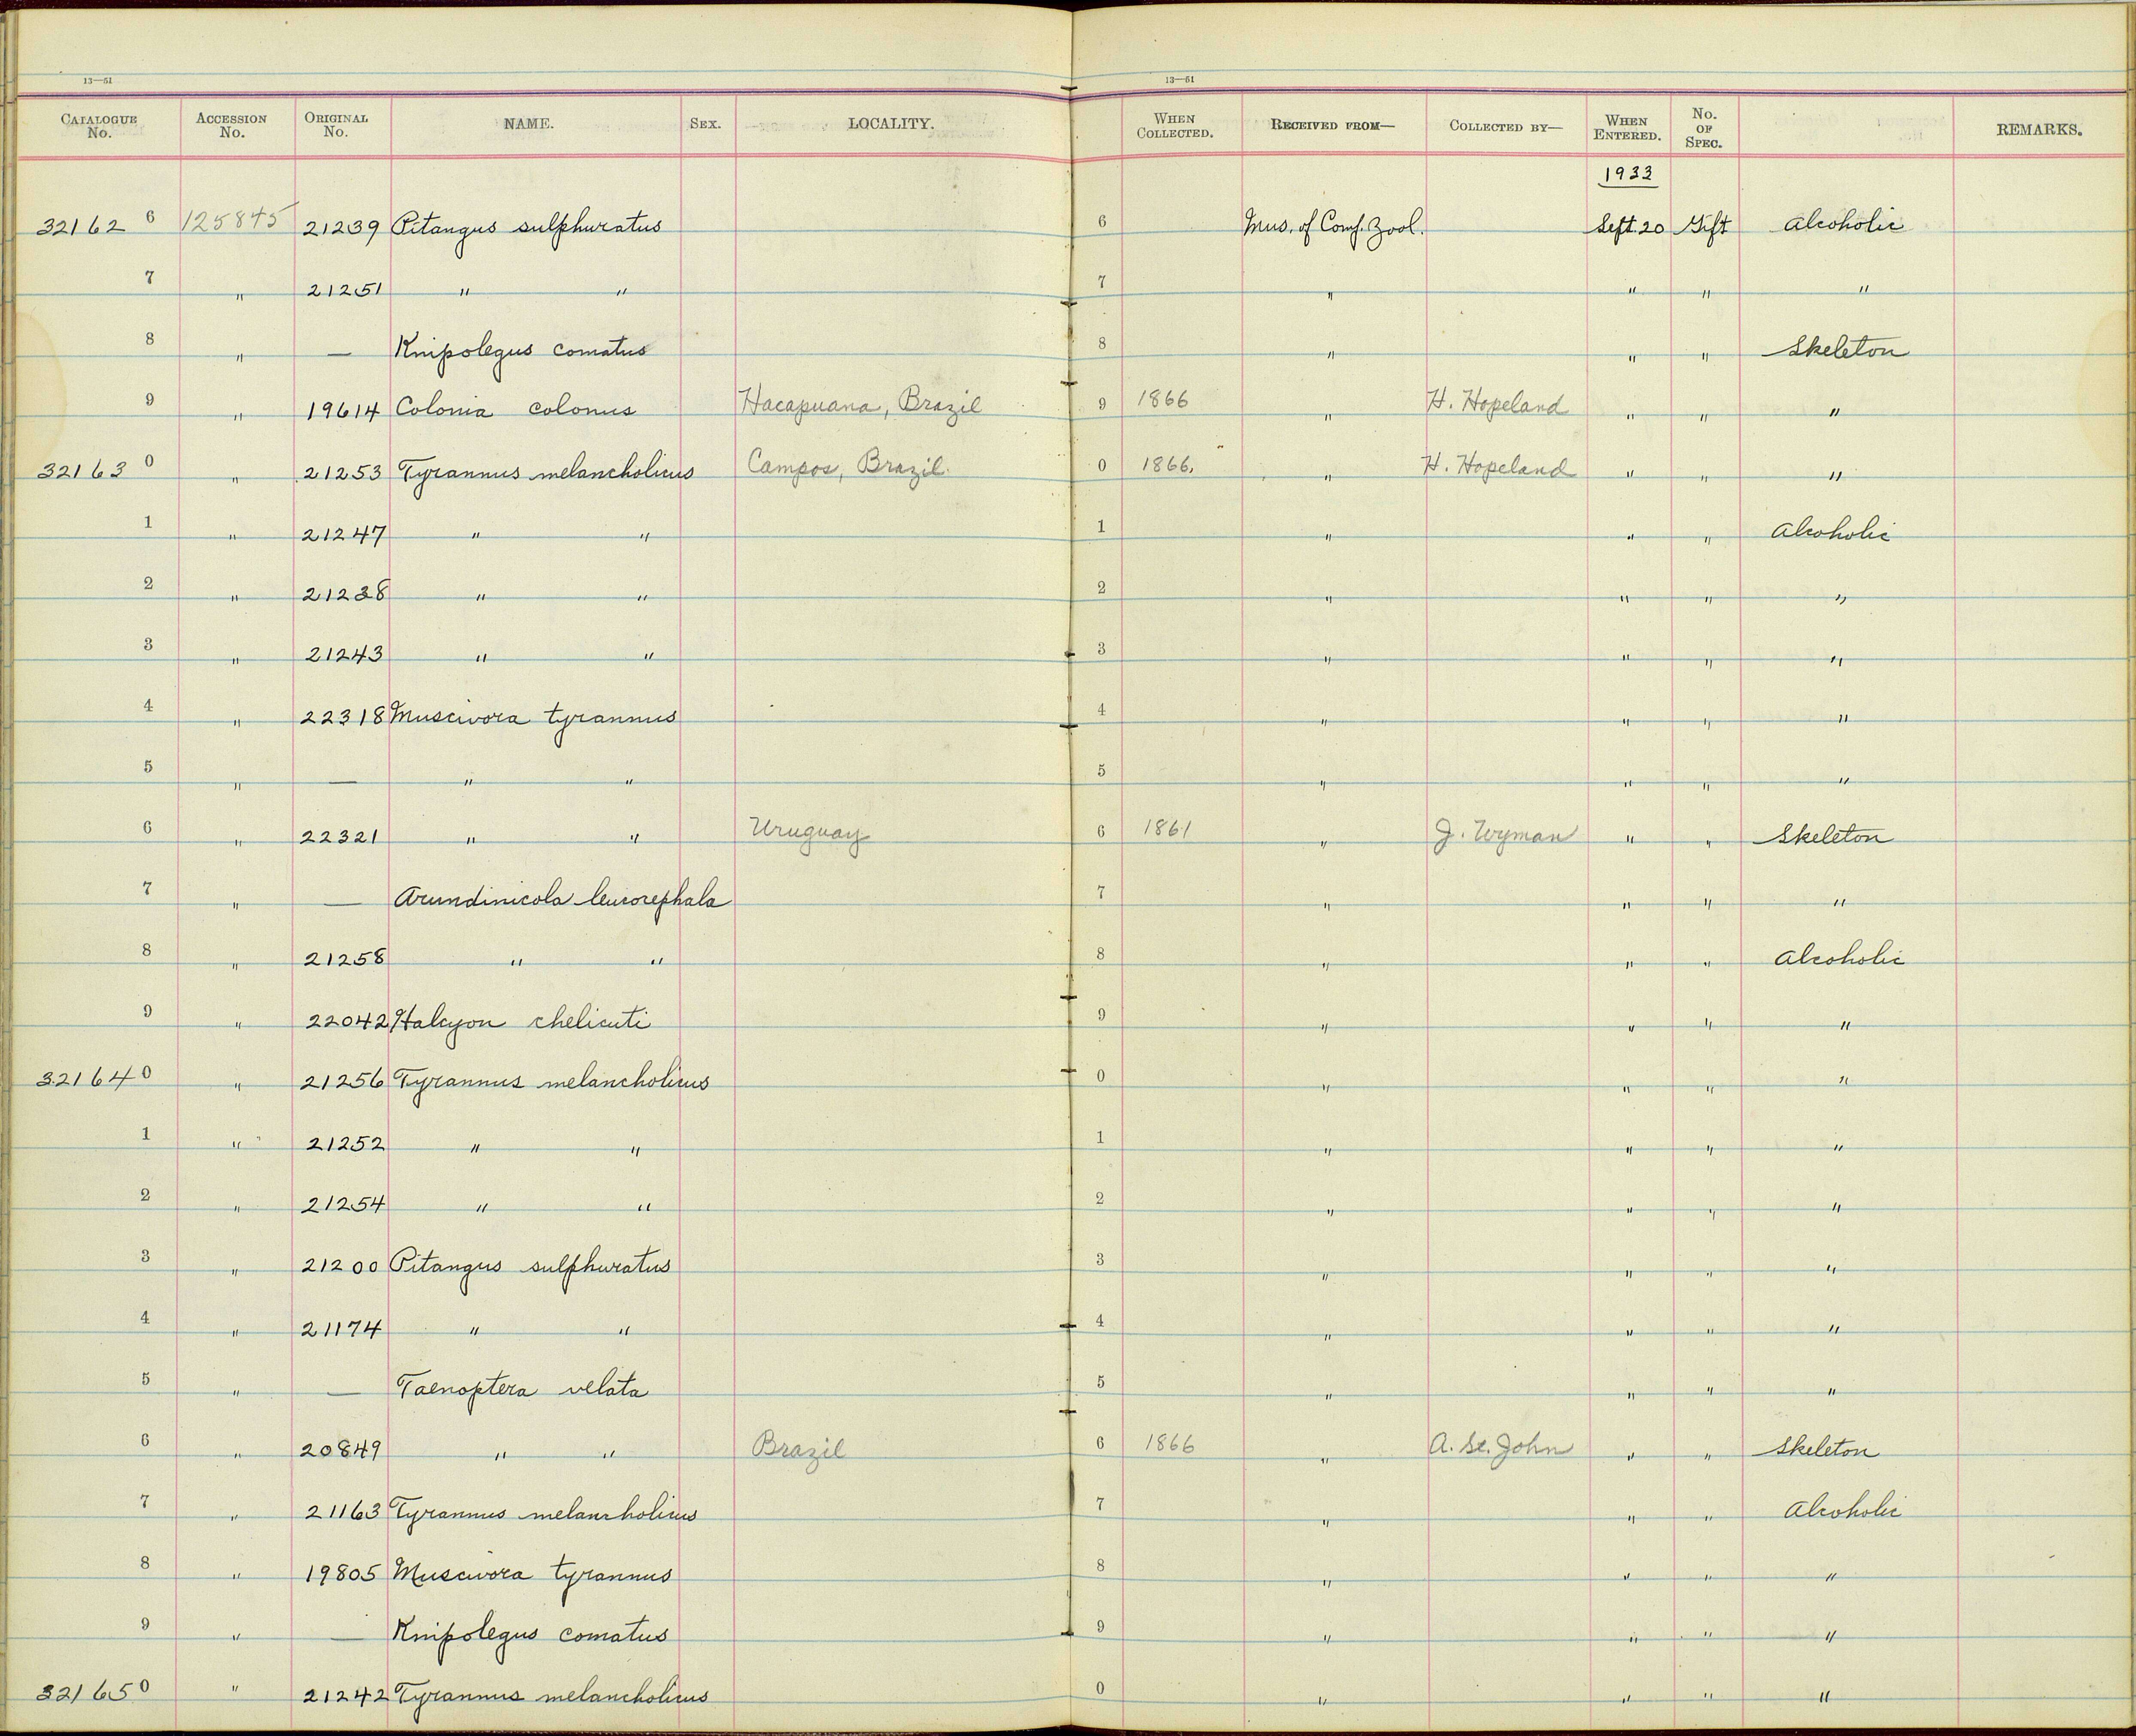 13—51 13—51
CATALOGUE No. ACCESSION No. ORIGINAL No. NAME. SEX. LOCALITY. WHEN COLLECTED. RECEIVED FROM— COLLECTED BY— WHEN ENTERED. No. OF SPEC. REMARKS.
1933
32162 6 125845 21239 Pitangus sulphuratus 6 Mus. of Comp. Zool. Sept. 20 Gift Alcoholic
7 " 21251 " " 7 " " " "
8 " — Knipolegus comatus 8 " " " Skeleton
9 " 19614 Colonia colonus Hacapuana, Brazil 9 1866 " H. Hopeland " " "
32163 0 " 21253 Tyrannus melancholicus Campos, Brazil 0 1866. " H. Hopeland " " "
1 " 21247 " " 1 " " " Alcoholic
2 " 21238 " " 2 " " " "
3 " 21243 " " 3 " " " "
4 " 22318 Muscivora tyrannus 4 " " " "
5 " — " " 5 " " " "
6 " 22321 " " Uruguay 6 1861 " J. Wyman " " Skeleton
7 " — Arundinicola leucocephala 7 " " " "
8 " 21258 " " 8 " " " Alcoholic
9 " 22042 Halcyon chelicuti 9 " " " "
32164 0 " 21256 Tyrannus melancholicus 0 " " " "
1 " 21252 " " 1 " " " "
2 " 21254 " " 2 " " " "
3 " 21200 Pitangus sulphuratus 3 " " " "
4 " 21174 " " 4 " " " "
5 " — Taenoptera velata 5 " " " "
6 " 20849 " " Brazil 6 1866 " A. St. John " " Skeleton
7 " 21163 Tyrannus melancholicus 7 " " " Alcoholic
8 " 19805 Muscivora tyrannus 8 " " " "
9 " — Knipolegus comatus 9 " " " "
32165 0 " 21242 Tyrannus melancholicus 0 " " " "